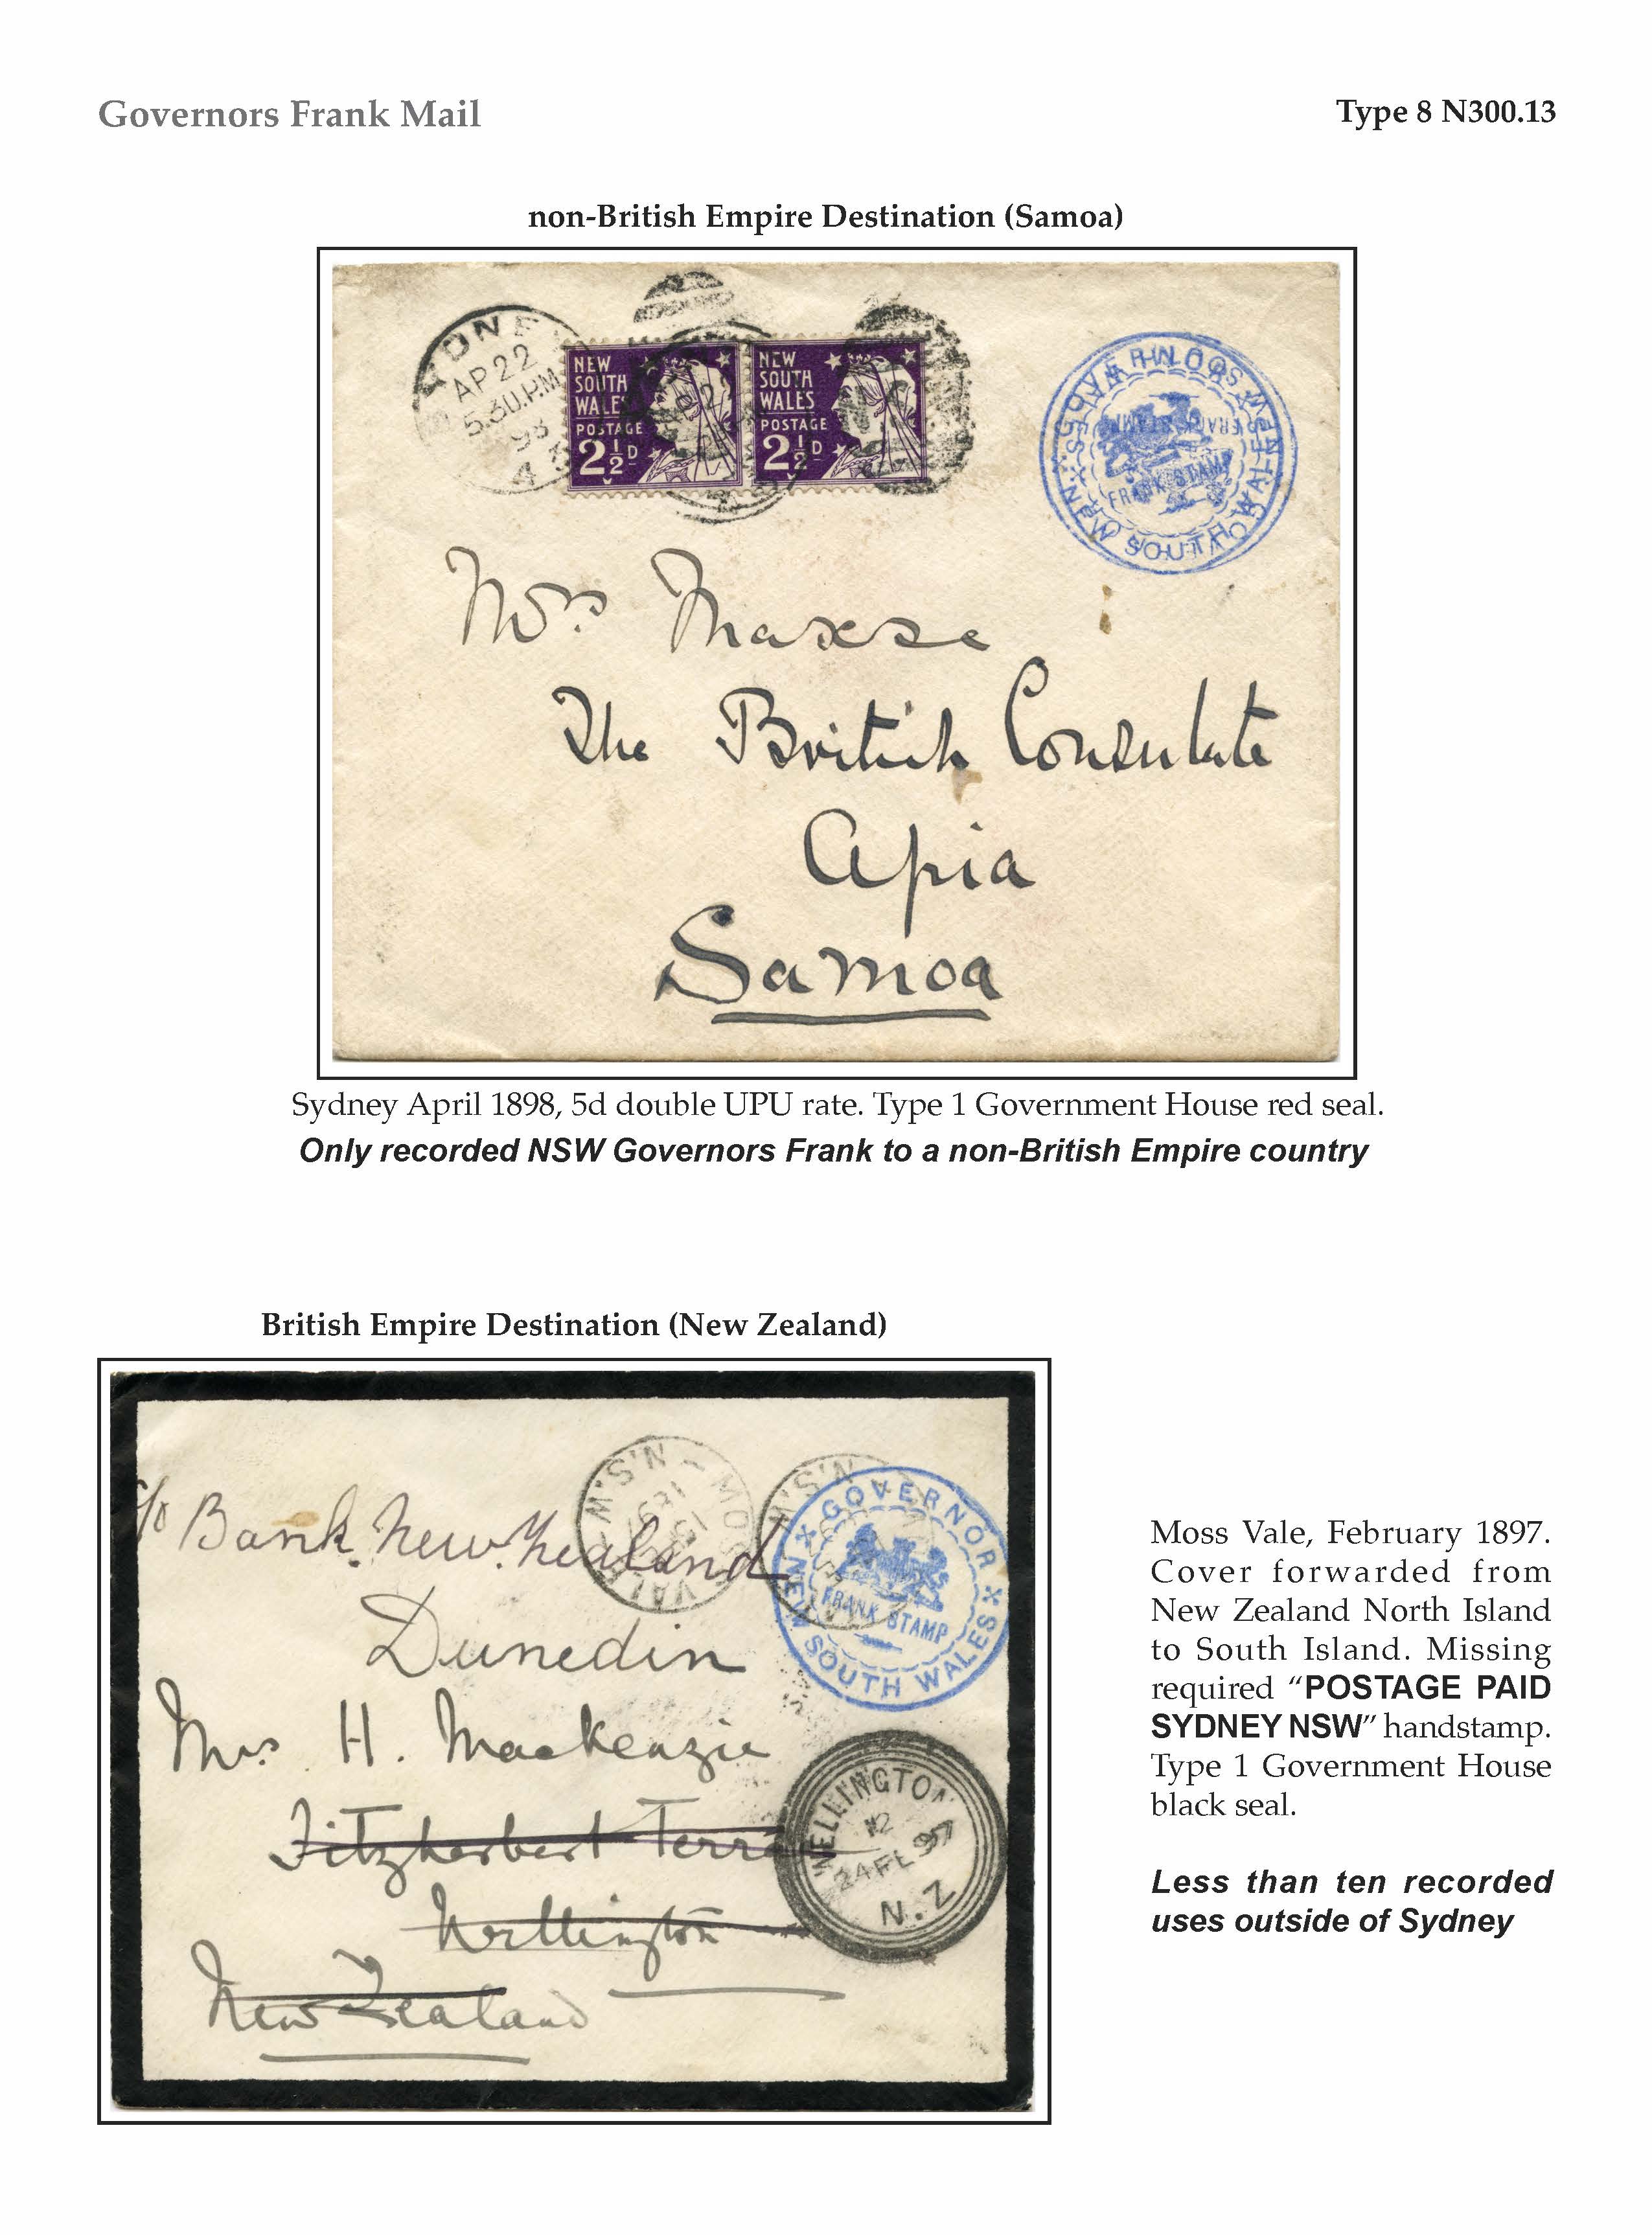 Governors Frank Mail
Type 8 N300.13
non-British Empire Destination (Samoa)
AP 22
5.30.P.M
98
NEW
SOUTH
WALES
POSTAGE
2½D
NEW
SOUTH
WALES
POSTAGE
2½D
NEW SOUTH WALES
FRANK STAMP
Mrs Maxse
The British Consulate
Apia
Samoa
Sydney April 1898, 5d double UPU rate. Type 1 Government House red seal.
Only recorded NSW Governors Frank to a non-British Empire country
British Empire Destination (New Zealand)
MOSS VALE N.S.W
GOVERNOR
FRANK STAMP
NEW SOUTH WALES
c/o Bank. New. Zealand
Dunedin
Mrs. H. Mackenzie
Fitzherbert Terra
Wellington
New Zealand
WELLINGTON
12
24 FE 97
N.Z
Moss Vale, February 1897.
Cover forwarded from
New Zealand North Island
to South Island. Missing
required “POSTAGE PAID
SYDNEY NSW” handstamp.
Type 1 Government House
black seal.
Less than ten recorded
uses outside of Sydney